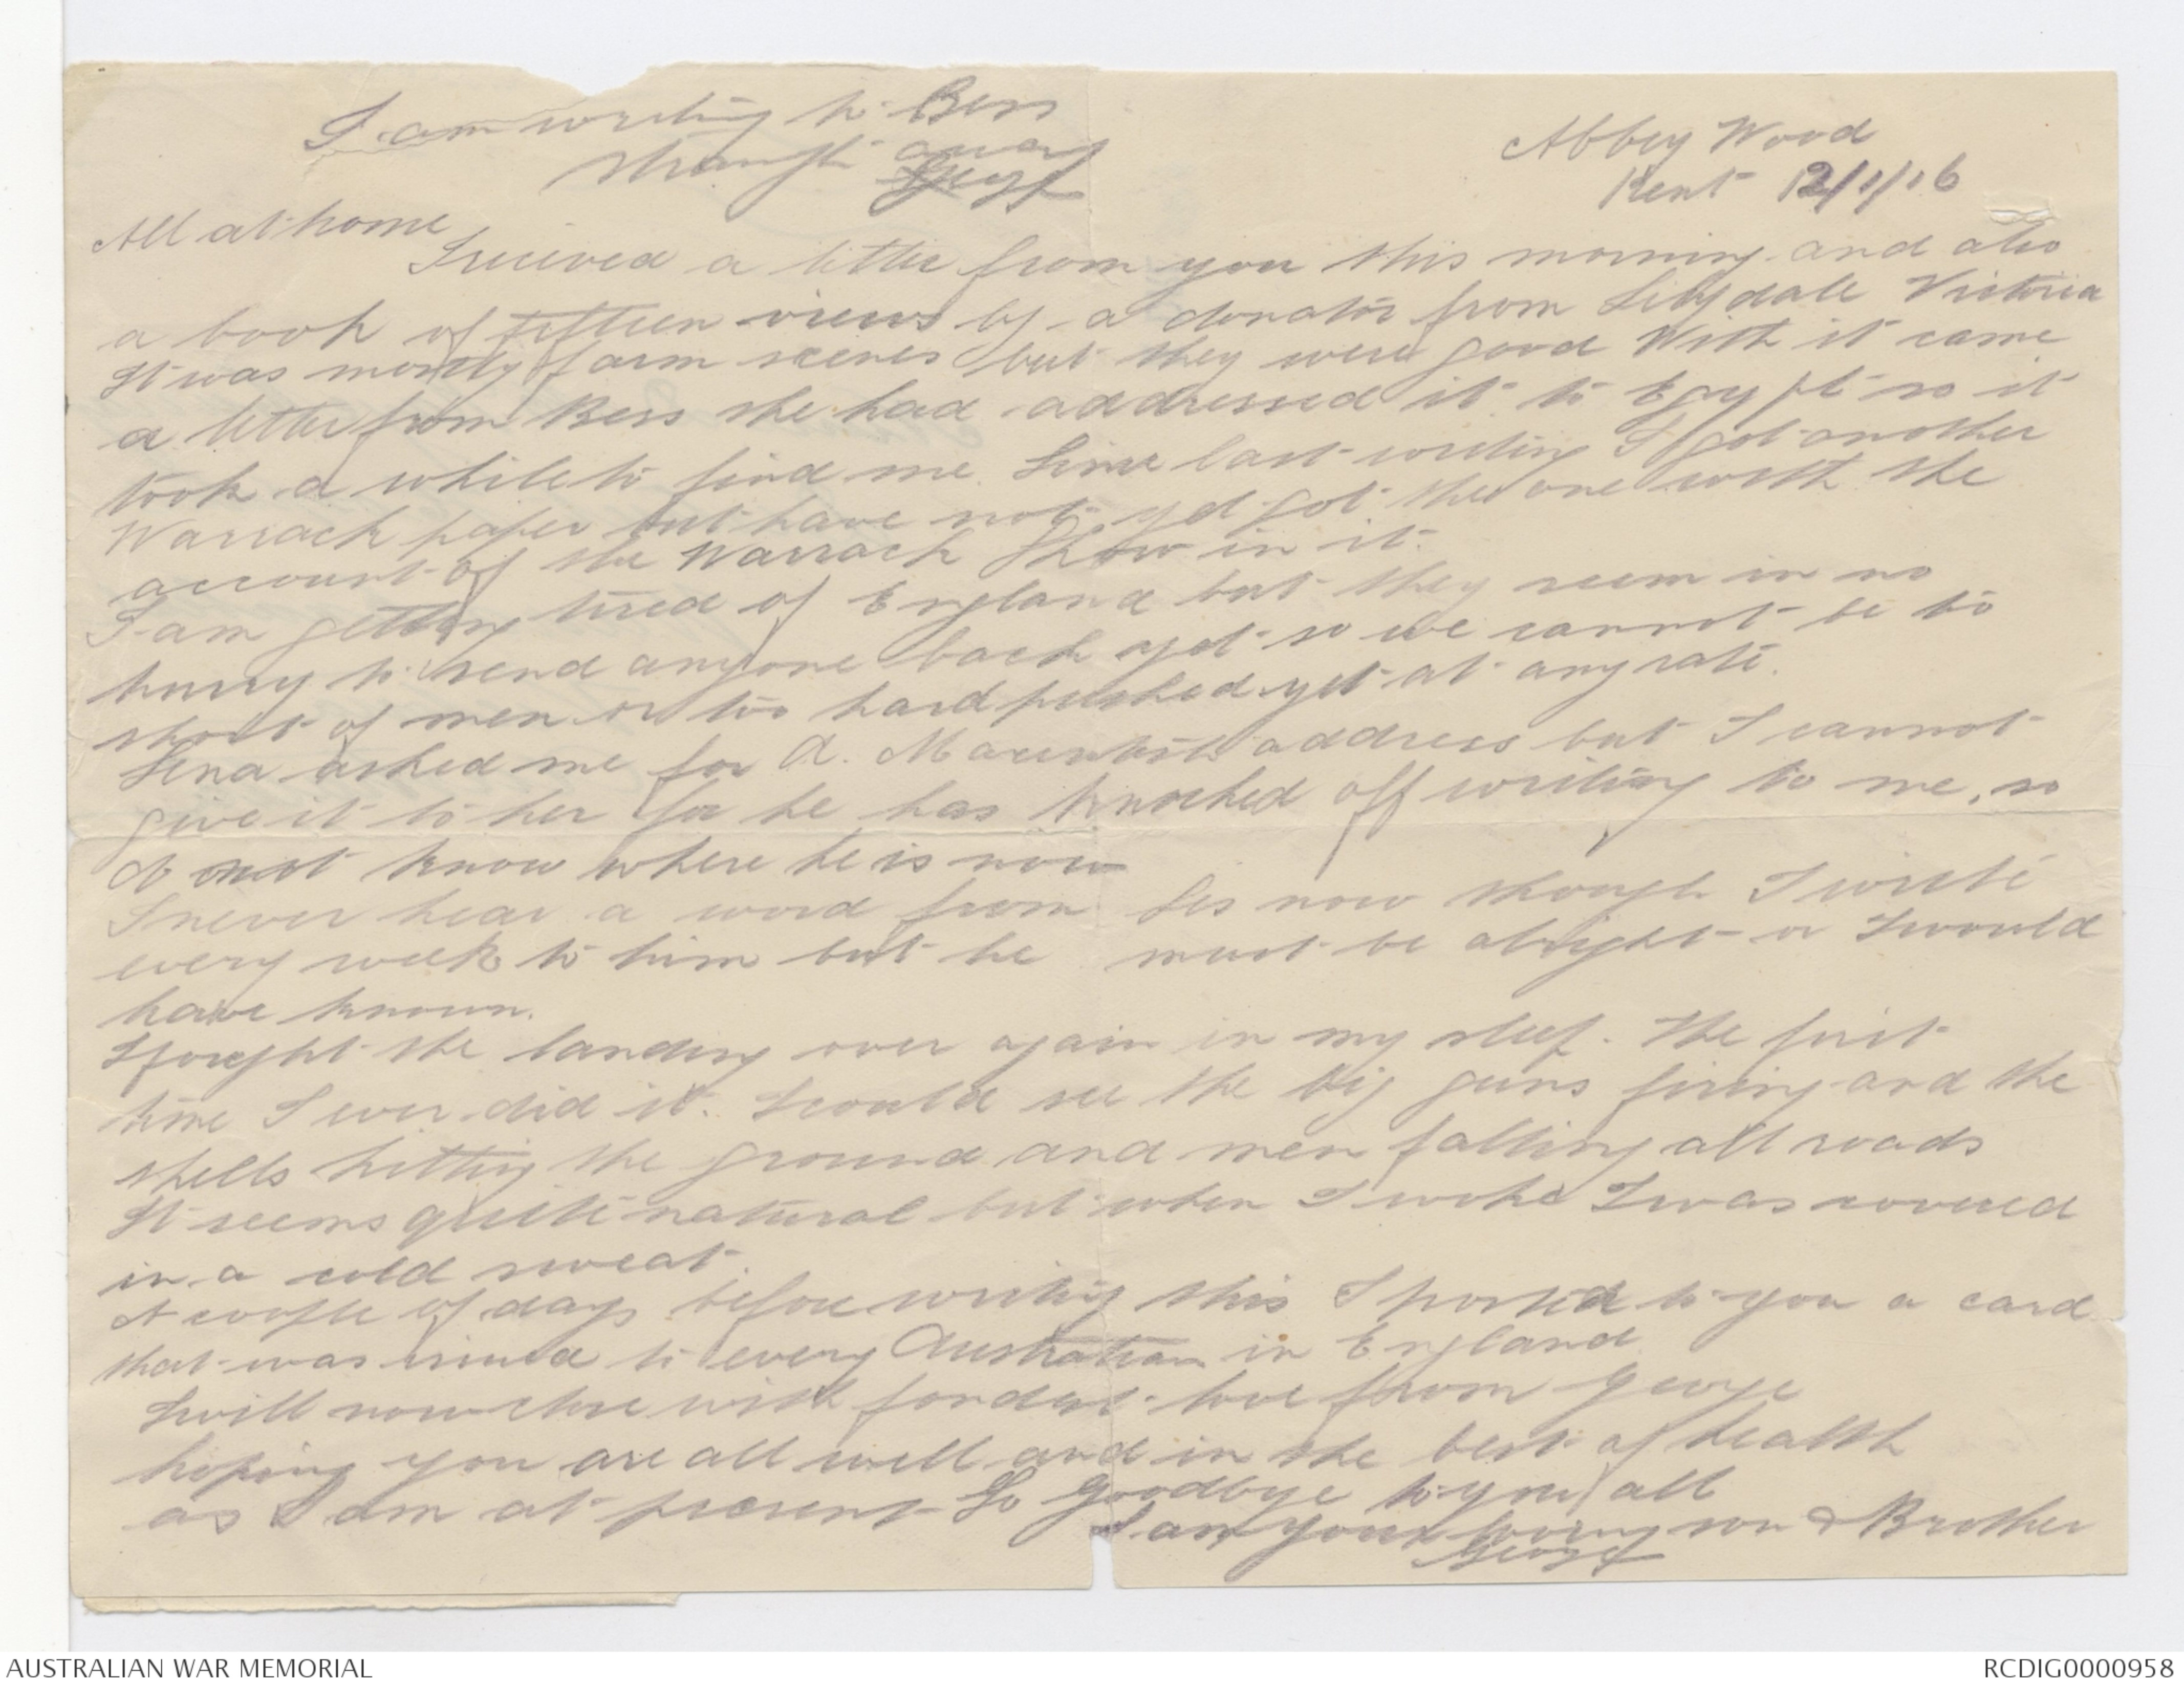 I am writing to Bess
straight away
George
Abbey Wood
Kent 12/1/16
All at home
I recieved a letter from you this morning and also
a book of fifteen views by a donator from Victoria
It was mostly farm scenes but they were good With it came
a letter from Bess she had addressed it to Egypt so it
took a while to find me. Since last writing I got another
Warrack paper but have not yet got the one with the
account of the Warrack Show in it.
I am getting tired of England but they seem in no
hurry to send anyone back yet so we cannot be to
short of men or too hard pushed yet at any rate.
Lena asked me for A. address but I cannot
give it to her for he has knocked off writing to me, so
do not know where he is now
I never hear a word from Les now though I write
every week to him but he must be alright or I would
have known.
I fought the landing over again in my sleep. The first
time I ever did it. I could see the big guns firing and the
shells hitting the ground and men falling all roads
It seems quite natural but when I woke I was covered
in a cold sweat.
A couple of days before writing this I posted to you a card
that was issued to every Australian in England
I will now close with fondest love from George
hoping you are all well and in the best of health
as I am at present So Goodbye to you all
I am your loving son & Brother
George
AUSTRALIAN WAR MEMORIAL
RCDIG0000958